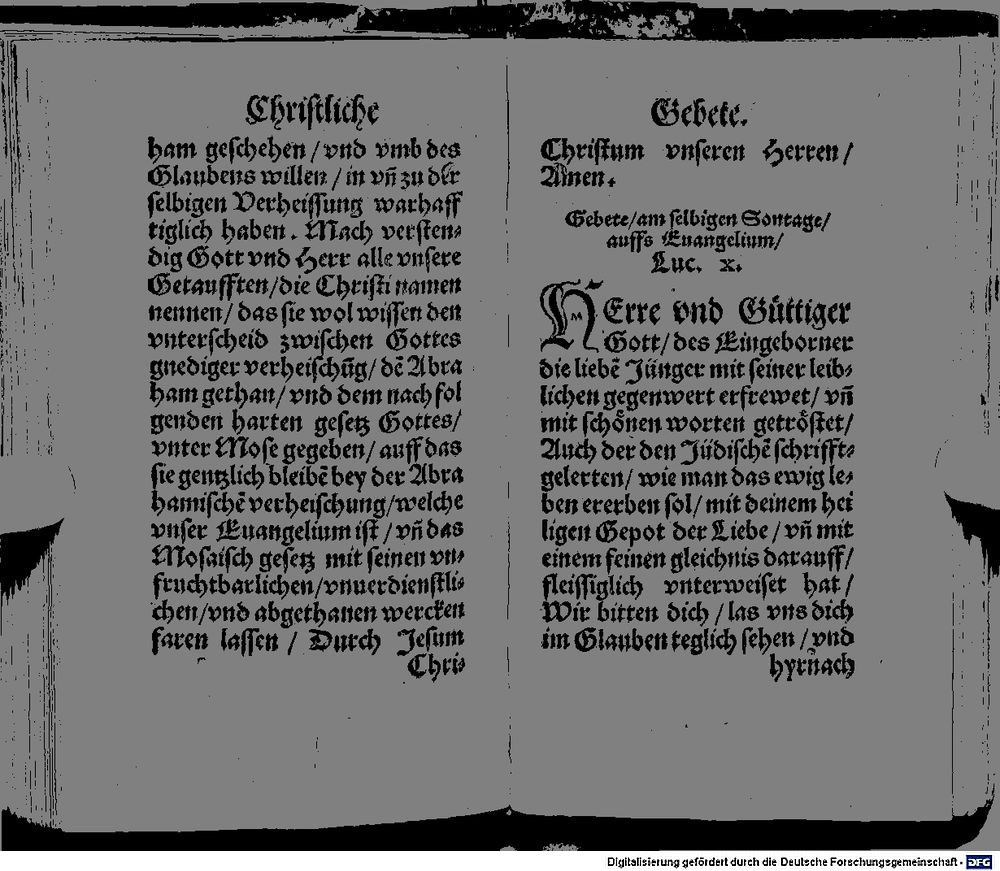 Christliche
ham geschehen / vnd vmb des
Glaubens willen / in vñ zu der
selbigen Verheissung warhaff
tiglich haben. Mach versten⸗
dig Gott vnd Herr alle vnsere
Getaufften/die Christi namen
nennen / das sie wol wissen den
vnterscheid zwischen Gottes
gnediger verheischũg/dẽ Abra
ham gethan/ vnd dem nach fol
genden harten gesetz Gottes/
vnter Mose gegeben/ auff das
sie gentzlich bleibẽ bey der Abra
hamischẽ verheischung/welche
vnser Euangelium ist / vñ das
Mosaisch gesetz mit seinen vn⸗
fruchtbarlichen/vnuerdienstli⸗
chen/vnd abgethanen wercken
faren lassen / Durch Jesum
Chri⸗
Gebete.
Christum vnseren Herren /
Amen.
Gebete/am selbigen Sontage/
auffs Euangelium/
Luc. x.
HErre vnd Güttiger
Gott/ des Eingeborner
die liebẽ Jünger mit seiner leib⸗
lichen gegenwert erfrewet/ vñ
mit schönen worten getröstet/
Auch der den Jüdischẽ schrifft⸗
gelerten/ wie man das ewig le⸗
ben ererben sol/ mit deinem hei
ligen Gepot der Liebe/ vñ mit
einem feinen gleichnis darauff/
fleissiglich vnterweiset hat/
Wir bitten dich / las vns dich
im Glauben teglich sehen / vnd
hyrnach
Digitalisierung gefördert durch die Deutsche Forschungsgemeinschaft - DFG